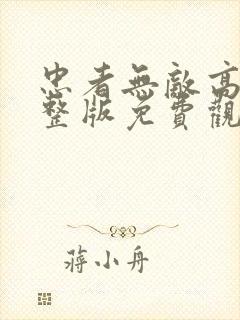 忠者無敵高
整版免費觀
蔣小舟